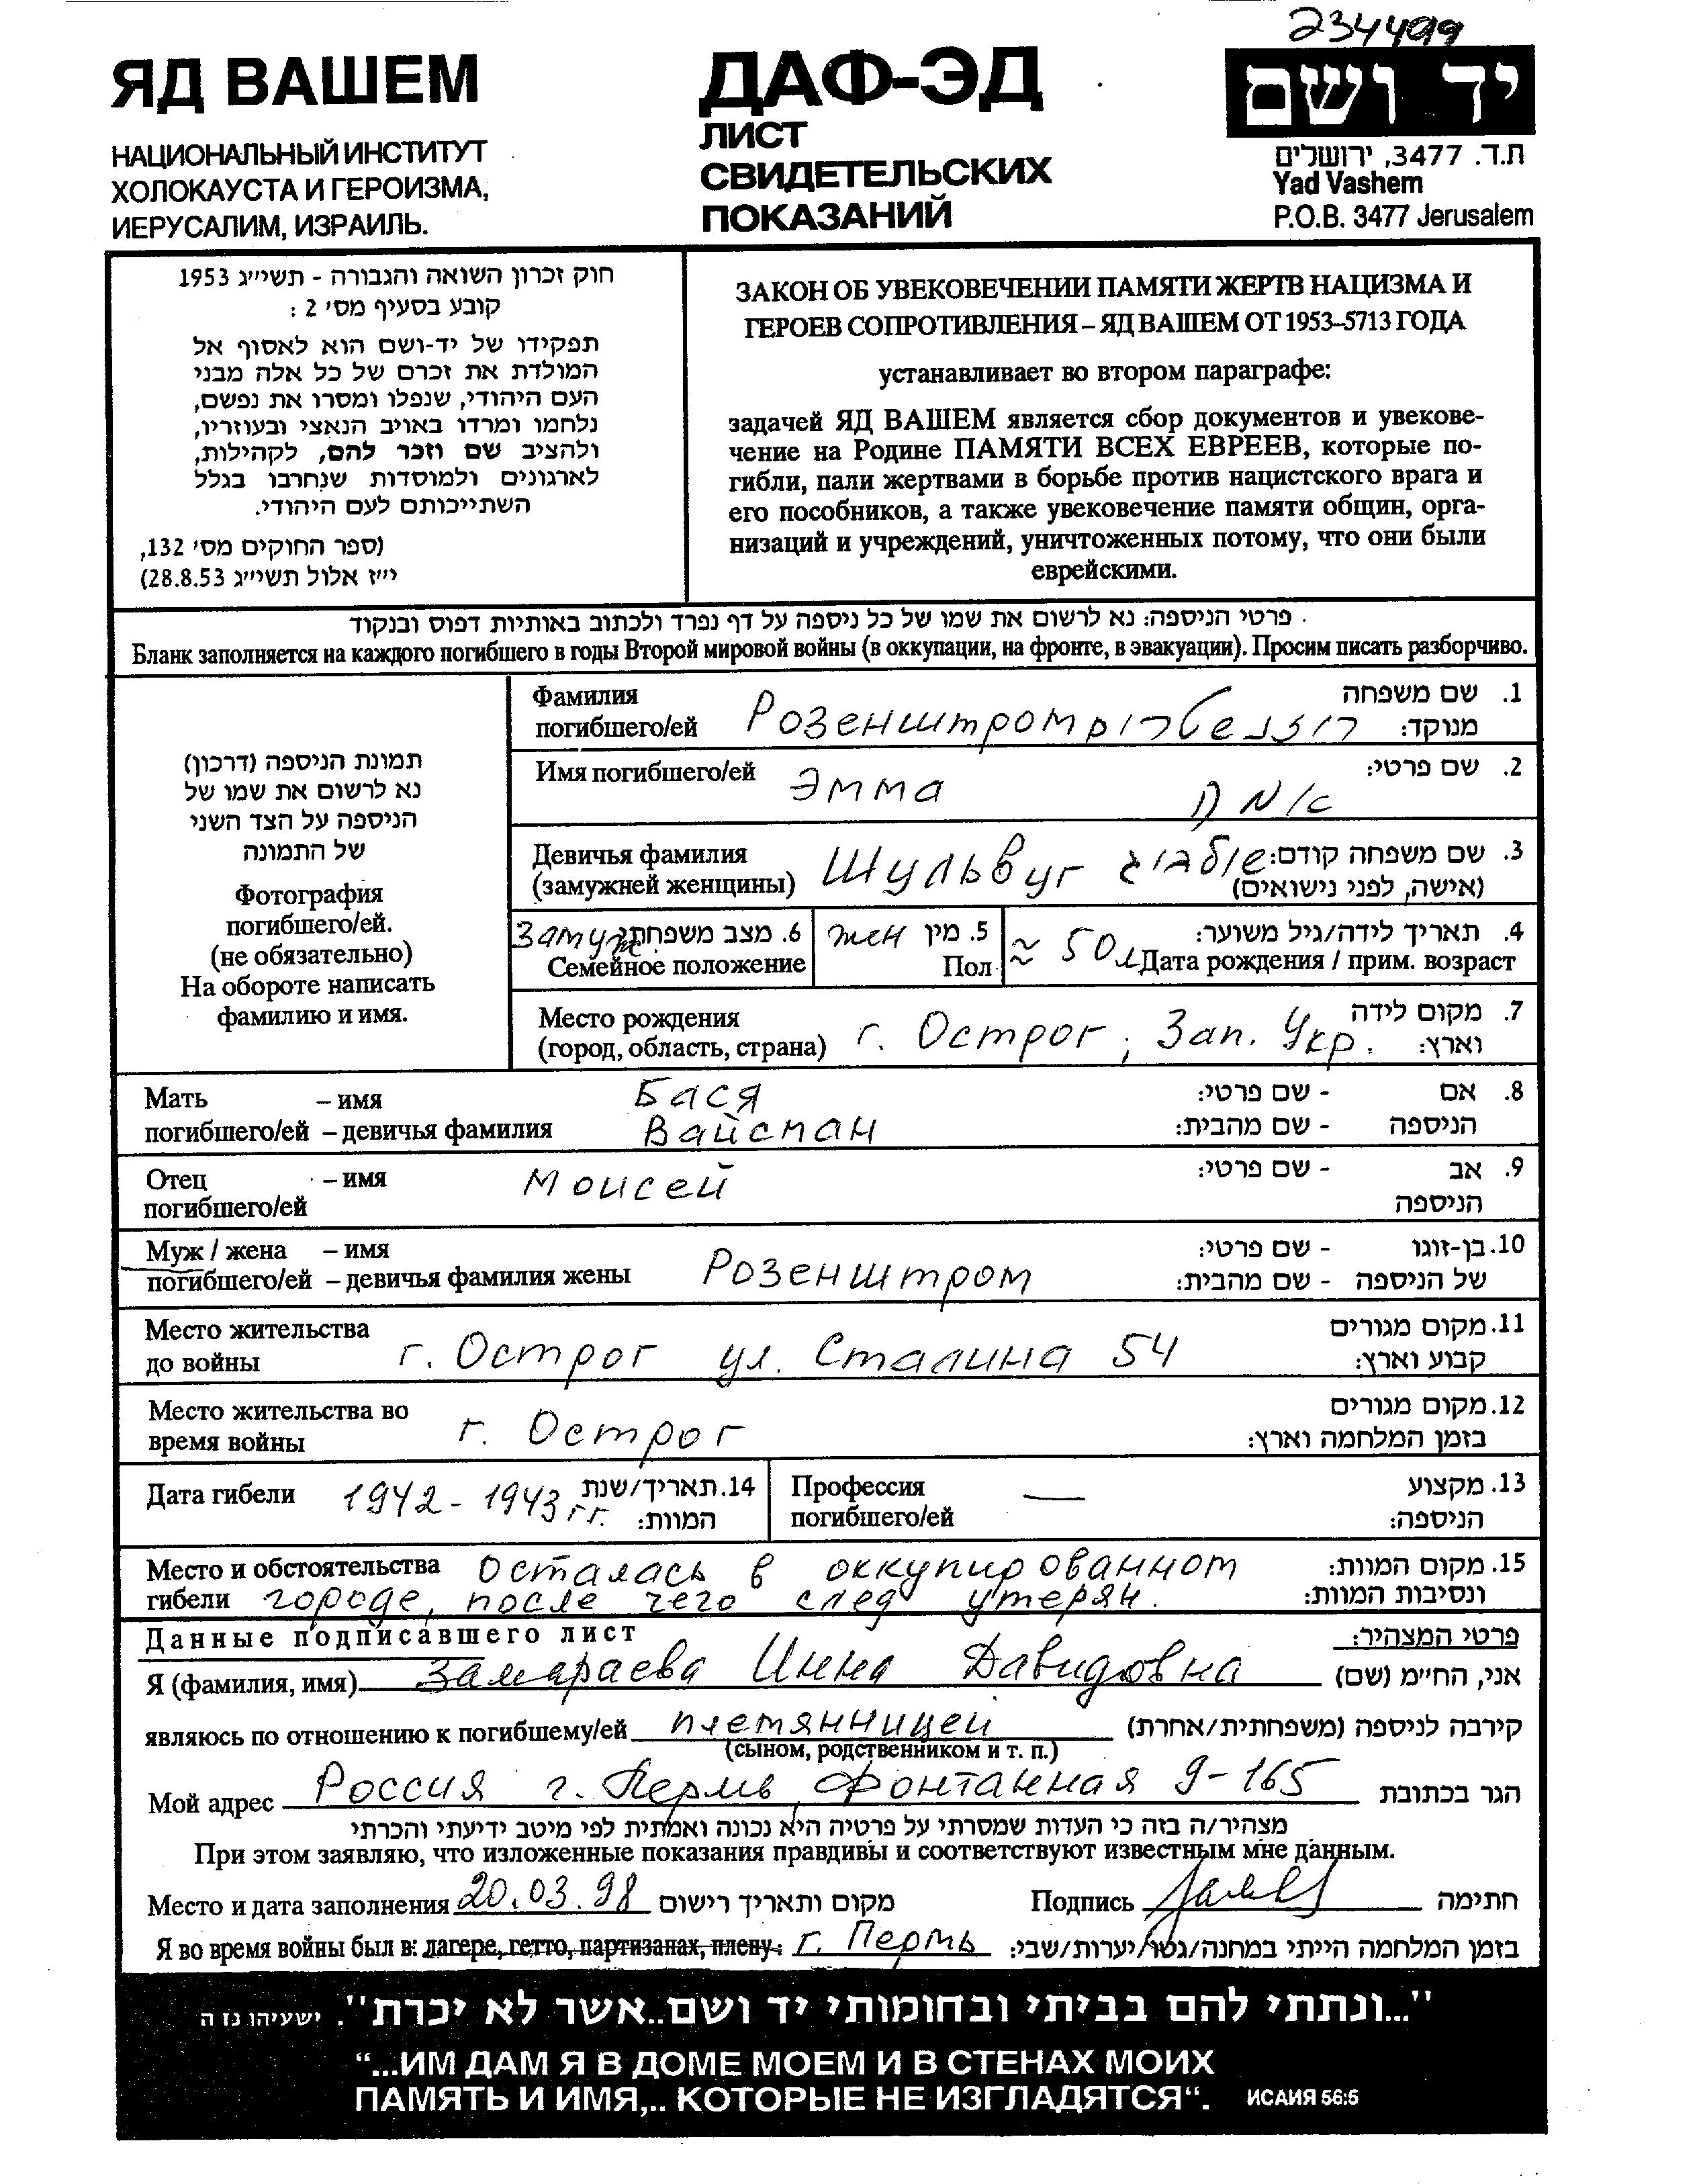 234499
ЯД ВАШЕМ
НАЦИОНАЛЬНЫЙ ИНСТИТУТ
ХОЛОКАУСТА И ГЕРОИЗМА,
ИЕРУСАЛИМ, ИЗРАИЛЬ.
ДАФ-ЭД
ЛИСТ
СВИДЕТЕЛЬСКИХ
ПОКАЗАНИЙ
יד ושם
ת.ד. 3477, ירושלים
Yad Vashem
P.O.B. 3477 Jerusalem
חוק זכרון השואה והגבורה - תשי״ג 1953
קובע בסעיף מס׳ 2 :
תפקידו של יד-ושם הוא לאסוף אל
המולדת את זכרם של כל אלה מבני
העם היהודי, שנפלו ומסרו את נפשם,
נלחמו ומרדו באויב הנאצי ובעוזריו,
ולהציב שם וזכר להם, לקהילות,
לארגונים ולמוסדות שנחרבו בגלל
השתייכותם לעם היהודי.
(ספר החוקים מס׳ 132,
י״ז אלול תשי״ג 28.8.53)
ЗАКОН ОБ УВЕКОВЕЧЕНИИ ПАМЯТИ ЖЕРТВ НАЦИЗМА И
ГЕРОЕВ СОПРОТИВЛЕНИЯ – ЯД ВАШЕМ ОТ 1953–5713 ГОДА
устанавливает во втором параграфе:
задачей ЯД ВАШЕМ является сбор документов и увекове-
чение на Родине ПАМЯТИ ВСЕХ ЕВРЕЕВ, которые по-
гибли, пали жертвами в борьбе против нацистского врага и
его пособников, а также увековечение памяти общин, орга-
низаций и учреждений, уничтоженных потому, что они были
еврейскими.
פרטי הניספה: נא לרשום את שמו של כל ניספה על דף נפרד ולכתוב באותיות דפוס ובנקוד
Бланк заполняется на каждого погибшего в годы Второй мировой войны (в оккупации, на фронте, в эвакуации). Просим писать разборчиво.
תמונת הניספה (דרכון)
נא לרשום את שמו של
הניספה על הצד השני
של התמונה
Фотография
погибшего/ей.
(не обязательно)
На обороте написать
фамилию и имя.
Фамилия 1. שם משפחה
погибшего/ей Розенштром רוזנשטרום מנוקד:
Имя погибшего/ей Эмма אמה 2. שם פרטי:
Девичья фамилия Шульвуг שולבוג 3. שם משפחה קודם:
(замужней женщины) (אישה, לפני נישואים)
Замуж 6. מצב משפחתי жен 5. מין ≈ 50 л 4. תאריך לידה/גיל משוער:
Семейное положение Пол Дата рождения / прим. возраст
Место рождения г. Острог, Зап. Укр. 7. מקום לידה
(город, область, страна) וארץ:
Мать – имя Бася 8. אם - שם פרטי:
погибшего/ей – девичья фамилия Вайсман הניספה - שם מהבית:
Отец – имя Моисей 9. אב - שם פרטי:
погибшего/ей הניספה
Муж / жена – имя Розенштром 10. בן-זוגו - שם פרטי:
погибшего/ей – девичья фамилия жены של הניספה - שם מהבית:
Место жительства 11. מקום מגורים
до войны г. Острог ул. Сталина 54 קבוע וארץ:
Место жительства во 12. מקום מגורים
время войны г. Острог בזמן המלחמה וארץ:
Дата гибели 1942 - 1943 гг. 14. תאריך/שנת המוות:
Профессия — 13. מקצוע
погибшего/ей הניספה:
Место и обстоятельства Осталась в оккупированном 15. מקום המוות:
гибели городе, после чего след утерян. ונסיבות המוות:
Данные подписавшего лист פרטי המצהיר:
Я (фамилия, имя) Замараева Инна Давидовна אני, החי״מ (שם)
являюсь по отношению к погибшему/ей племянницей קירבה לניספה (משפחתית/אחרת)
(сыном, родственником и т. п.)
Мой адрес Россия г. Пермь, Фонтанная 9-165 הגר בכתובת
מצהיר/ה בזה כי העדות שמסרתי על פרטיה היא נכונה ואמתית לפי מיטב ידיעתי והכרתי
При этом заявляю, что изложенные показания правдивы и соответствуют известным мне данным.
Место и дата заполнения 20.03.98 מקום ותאריך רישום Подпись חתימה
Я во время войны был в: лагере, гетто, партизанах, плену: г. Пермь בזמן המלחמה הייתי במחנה/גטו/יערות/שבי:
"...ונתתי להם בביתי ובחומותי יד ושם..אשר לא יכרת". ישעיהו נו ה
“...ИМ ДАМ Я В ДОМЕ МОЕМ И В СТЕНАХ МОИХ
ПАМЯТЬ И ИМЯ,.. КОТОРЫЕ НЕ ИЗГЛАДЯТСЯ“. ИСАИЯ 56:5